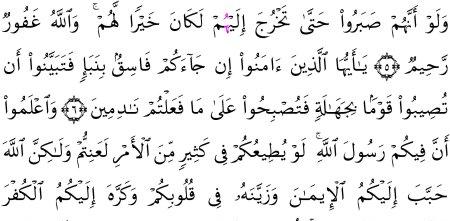 وَلَوْ أَنَّهُمْ صَبَرُوا۟ حَتَّىٰ تَخْرُجَ إِلَيْهِمْ لَكَانَ خَيْرًا لَّهُمْ ۚ وَٱللَّهُ غَفُورٌ
رَّحِيمٌ ﴿٥﴾ يَـٰٓأَيُّهَا ٱلَّذِينَ ءَامَنُوٓا۟ إِن جَآءَكُمْ فَاسِقٌۢ بِنَبَإٍ فَتَبَيَّنُوٓا۟ أَن
تُصِيبُوا۟ قَوْمًۢا بِجَهَـٰلَةٍ فَتُصْبِحُوا۟ عَلَىٰ مَا فَعَلْتُمْ نَـٰدِمِينَ ﴿٦﴾ وَٱعْلَمُوٓا۟
أَنَّ فِيكُمْ رَسُولَ ٱللَّهِ ۚ لَوْ يُطِيعُكُمْ فِى كَثِيرٍ مِّنَ ٱلْأَمْرِ لَعَنِتُّمْ وَلَـٰكِنَّ ٱللَّهَ
حَبَّبَ إِلَيْكُمُ ٱلْإِيمَـٰنَ وَزَيَّنَهُۥ فِى قُلُوبِكُمْ وَكَرَّهَ إِلَيْكُمُ ٱلْكُفْرَ